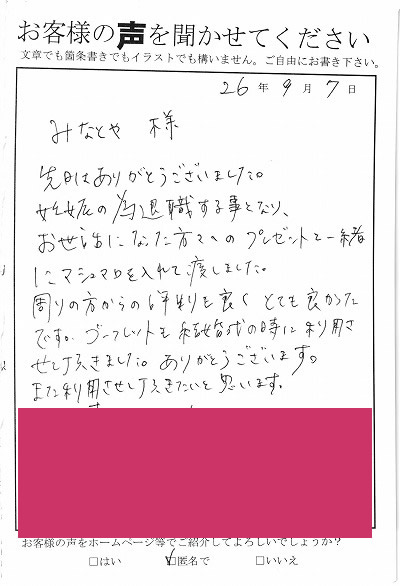 お客様の声を聞かせてください
文章でも箇条書きでもイラストでも構いません。ご自由にお書き下さい。
26年9月7日
みなとや 様
先日はありがとうございました。
妊娠の為退職する事となり、
お世話になった方々へのプレゼントと一緒
にマシュマロを入れて渡しました。
周りの方からの評判も良く とても良かった
です。ゴーフレットも結婚式の時に利用さ
せて頂きました。ありがとうございます。
また利用させて頂きたいと思います。
お客様の声をホームページ等でご紹介してよろしいでしょうか？
□はい ☑匿名で □いいえ